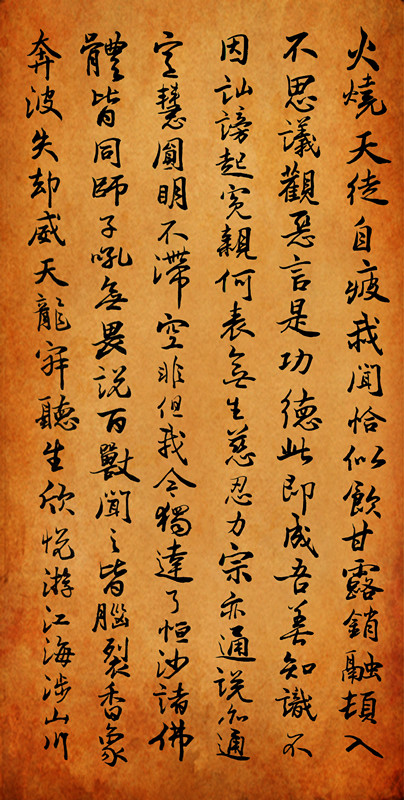 火燒天徒自疲我聞恰似飲甘露銷融頓入
不思議觀惡言是功德此即成吾善知識不
因訕謗起冤親何表無生慈忍力宗亦通說亦通
定慧圓明不滯空非但我今獨達了恒沙諸佛
體皆同師子吼無畏說百獸聞之皆腦裂香象
奔波失却威天龍寂聽生欣悅游江海涉山川